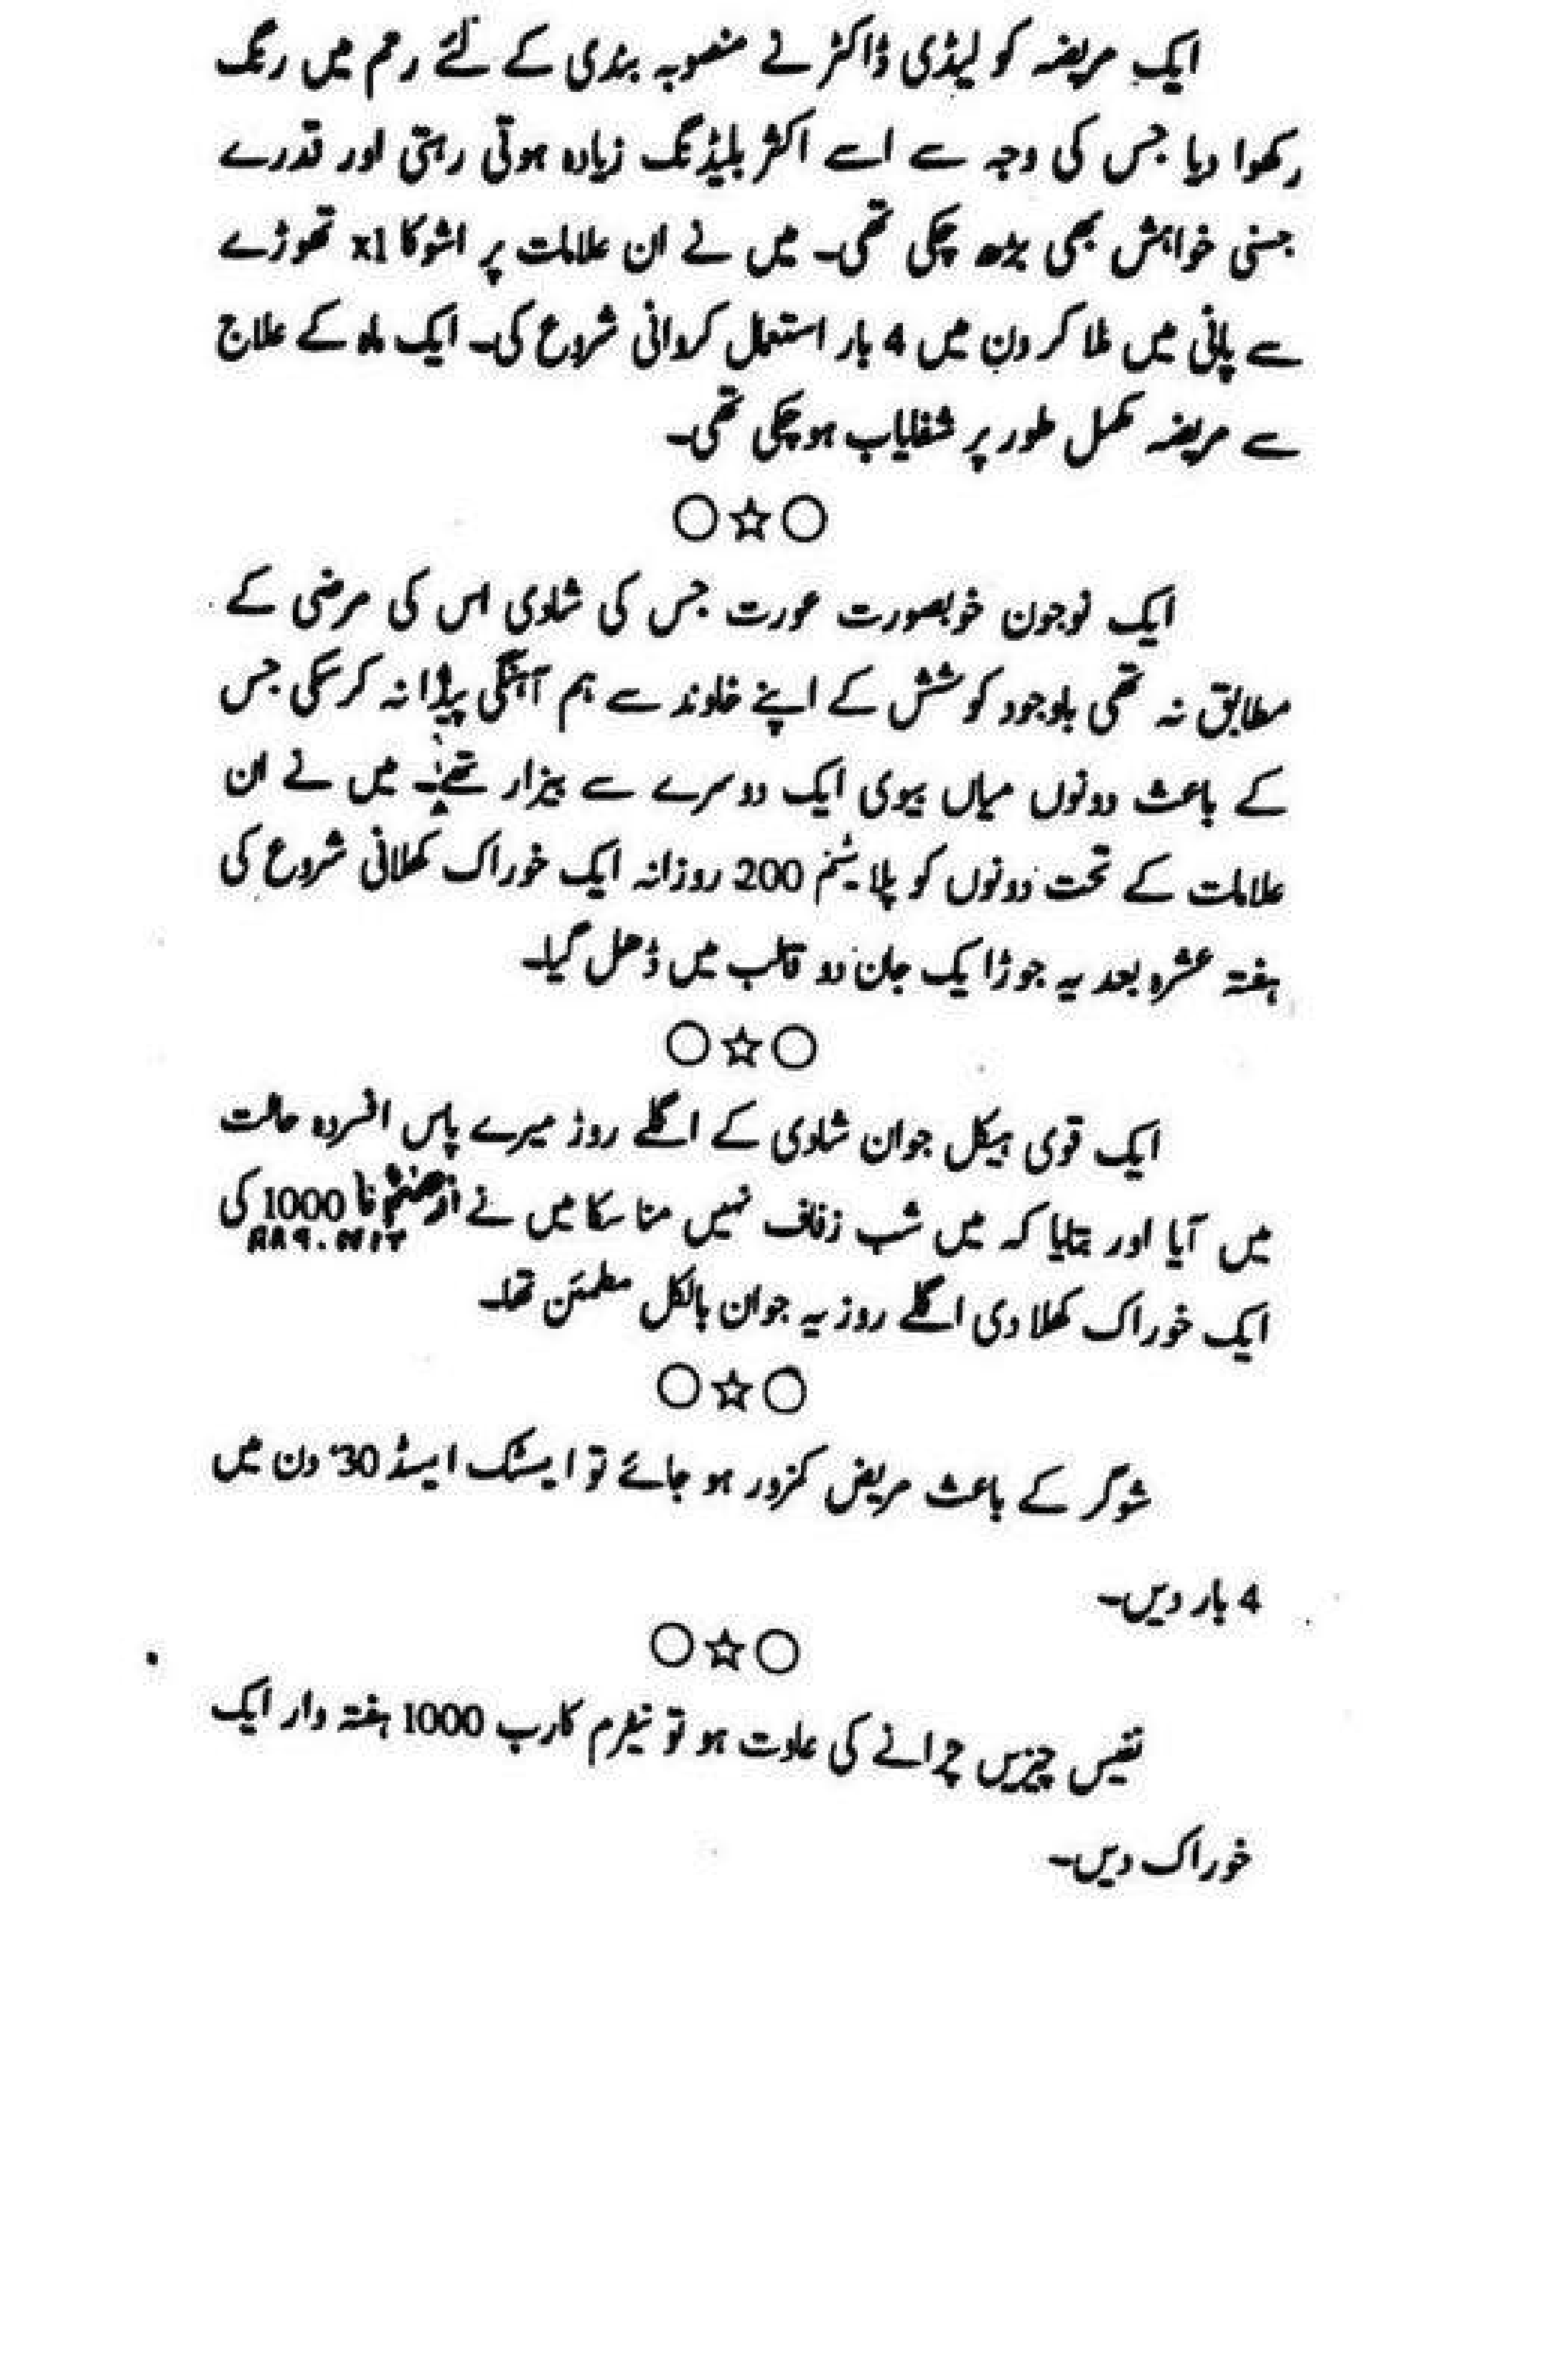 ایک مریضہ کو لیڈی ڈاکٹر نے منصوبہ بندی کے لئے رحم میں رنگ
رکھوا دیا جس کی وجہ سے اسے اکثر بلیڈنگ زیادہ ہوتی رہتی اور قدرے
جنسی خواہش بھی بڑھ چکی تھی۔ میں نے ان علامات پر اشوکا x1 تھوڑے
سے پانی میں ملا کر دن میں 4 بار استعمال کروانی شروع کی۔ ایک ماہ کے علاج
سے مریضہ مکمل طور پر شفایاب ہو چکی تھی۔
○☆○
ایک نوجون خوبصورت عورت جس کی شادی اس کی مرضی کے
مطابق نہ تھی باوجود کوشش کے اپنے خاوند سے ہم آہنگی پیدا نہ کر سکی جس
کے باعث دونوں میاں بیوی ایک دوسرے سے بیزار تھے۔ میں نے ان
علامات کے تحت دونوں کو پلاٹینم 200 روزانہ ایک خوراک کھلانی شروع کی
ہفتہ عشرہ بعد یہ جوڑا ایک جان دو قالب میں ڈھل گیا۔
○☆○
ایک قوی ہیکل جوان شادی کے اگلے روز میرے پاس افسردہ حالت
میں آیا اور بتایا کہ میں شب زفاف نہیں منا سکا میں نے 1000 کی
ایک خوراک کھلا دی اگلے روز یہ جوان بالکل مطمئن تھا۔
○☆○
شوگر کے باعث مریض کمزور ہو جائے تو ایسٹک ایسڈ 30 دن میں
4 بار دیں۔
○☆○
نفیس چیزیں چرانے کی عادت ہو تو نیٹرم کارب 1000 ہفتہ وار ایک
خوراک دیں۔